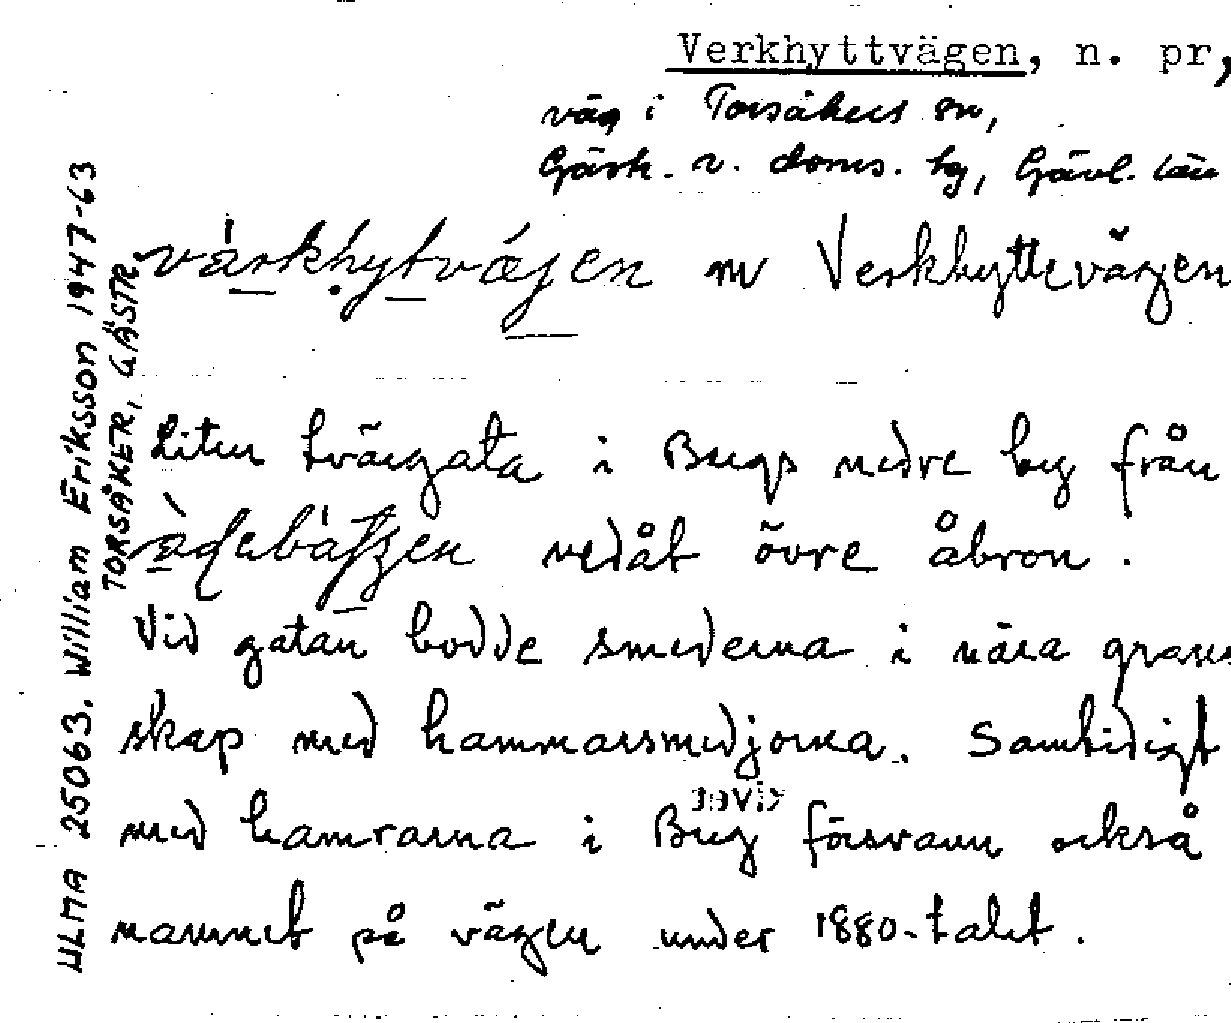 Verkhyttvägen, n. pr,
väg i Torsåkers sn,
Gästr. v. doms. tg, Gävl. län
värkhytvägen m Verkhyttevägen
Liten tvärgata i Bergs nedre by från
nedåt övre åbron.
Vid gatan bodde smederna i nära grann
skap med hammarsmedjorna. Samtidigt
med hamrarna i Berg försvann också
namnet på vägen under 1880-talet.
ULMA 25063. William Eriksson 1947-63
TORSÅKER, GÄSTR.